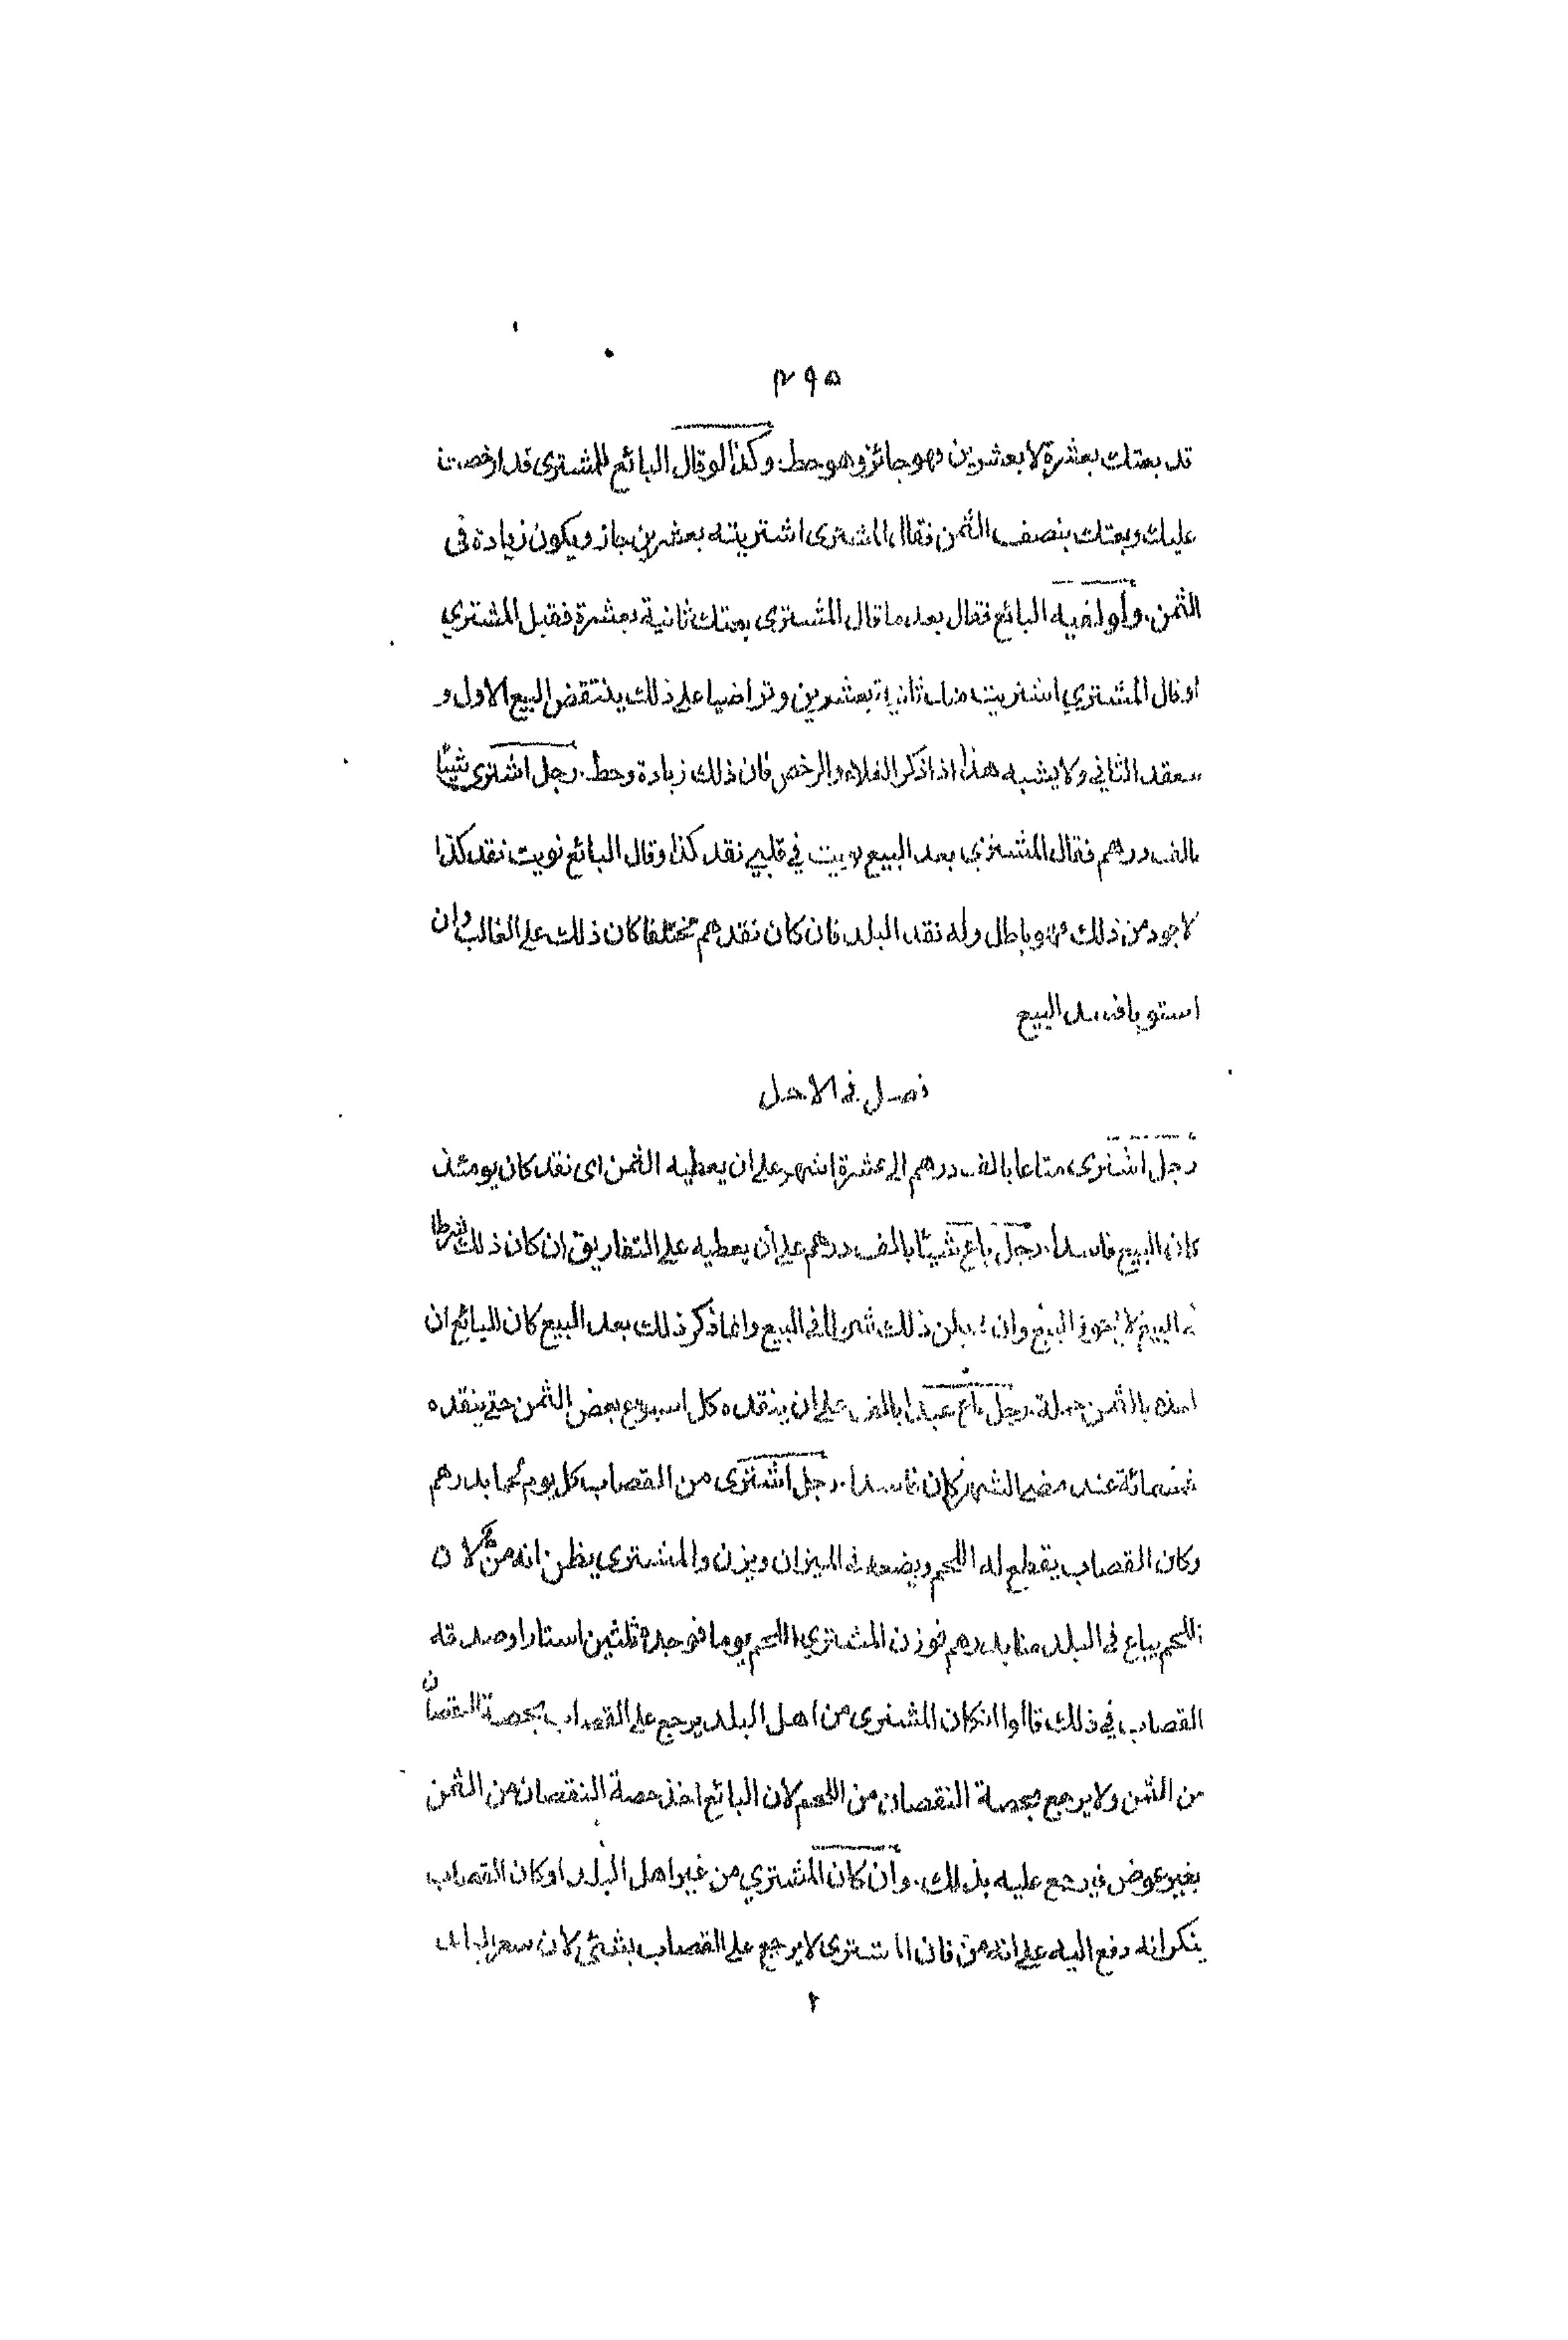 ٢٩٥
قد بعتك بعشرة لا بعشرين فهو جائز وهو حط. وكذا لو قال البائع للمشترى قد ارخصت
عليك وبعتك بنصف الثمن فقال المشترى اشتريته بعشرين جاز ويكون زيادة فى
الثمن. البائع فقال بعد ما قال المشترى بعتك ثانية بعشرة فقبل المشتري
او قال المشتري اشتريت منك ثانية بعشرين وتراضيا على ذلك ينتقض البيع الاول و
ينعقد الثاني ولا يشبه هذا اذا ذكر الغلاء والرخص فان ذلك زيادة وحط. رجل اشترى شيئا
بالف درهم فقال المشتري بعد البيع نويت في قلبي نقد كذا وقال البائع نويت نقد كذا
لاجود من ذلك فهو باطل وله نقد البلد فان كان نقدهم مختلفا كان ذلك على الغالب وان
استويا فسد البيع
فصل فى الاجل
رجل اشترى متاعا بالف درهم الى عشرة اشهر على ان يعطيه الثمن اى نقد كان يومئذ
كان البيع فاسدا. رجل باع شيئا بالف درهم على أن يعطيه على التفاريق ان كان ذلك شرطا
فى البيع لا يجوز البيع وان لم يكن ذلك شرطا فى البيع وانما ذكر ذلك بعد البيع كان للبائع ان
ياخذه بالثمن جملة. رجل باع عبدا بالف على ان ينقده كل اسبوع بعض الثمن حتى ينقده
خمسمائة عند مضي الشهر كان فاسدا. رجل اشترى من القصاب كل يوم لحما بدرهم
وكان القصاب يقطع له اللحم ويضعه فى الميزان ويزن والمشتري يظن انه من لان
اللحم يباع فى البلد منا بدرهم فوزن المشتري اللحم يوما فوجده ثلثين استارا وصدقه
القصاب في ذلك قالوا ان كان المشترى من اهل البلد يرجع على القصاب بحصة النقصان
من الثمن ولا يرجع بحصة النقصان من اللحم لان البائع اخذ حصة النقصان من الثمن
بغير عوض فيرجع عليه بذلك. وان كان المشتري من غير اهل البلد او كان القصاب
ينكر انه دفع اليه على انه من فان المشترى لا يرجع على القصاب بشئ لان سعر البلد
٢